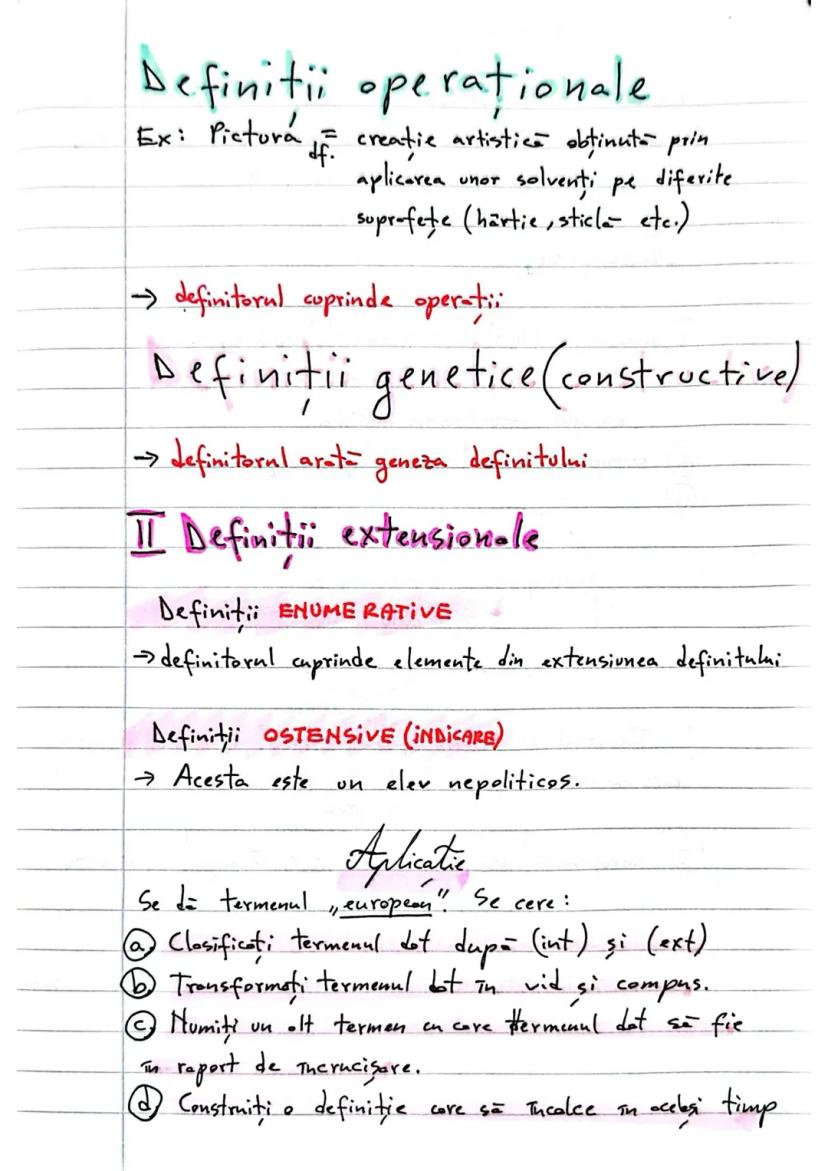 Definiții operaționale
Ex: Pictură = df. creație artistică obținută prin
aplicarea unor solvenți pe diferite
suprafețe (hârtie, sticlă etc.)
→ definitorul cuprinde operații
Definiții genetice (constructive)
→ definitorul arată geneza definitului
II Definiții extensionale
Definiții ENUMERATIVE
→ definitorul cuprinde elemente din extensiunea definitului
Definiții OSTENSIVE (INDICARE)
→ Acesta este un elev nepoliticos.
Aplicație
Se dă termenul „european". Se cere:
a) Clasificați termenul dat după (int) și (ext)
b) Transformați termenul dat în vid și compus.
c) Numiți un alt termen cu care termenul dat să fie
în raport de încrucișare.
d) Construiți o definiție care să încalce în același timp